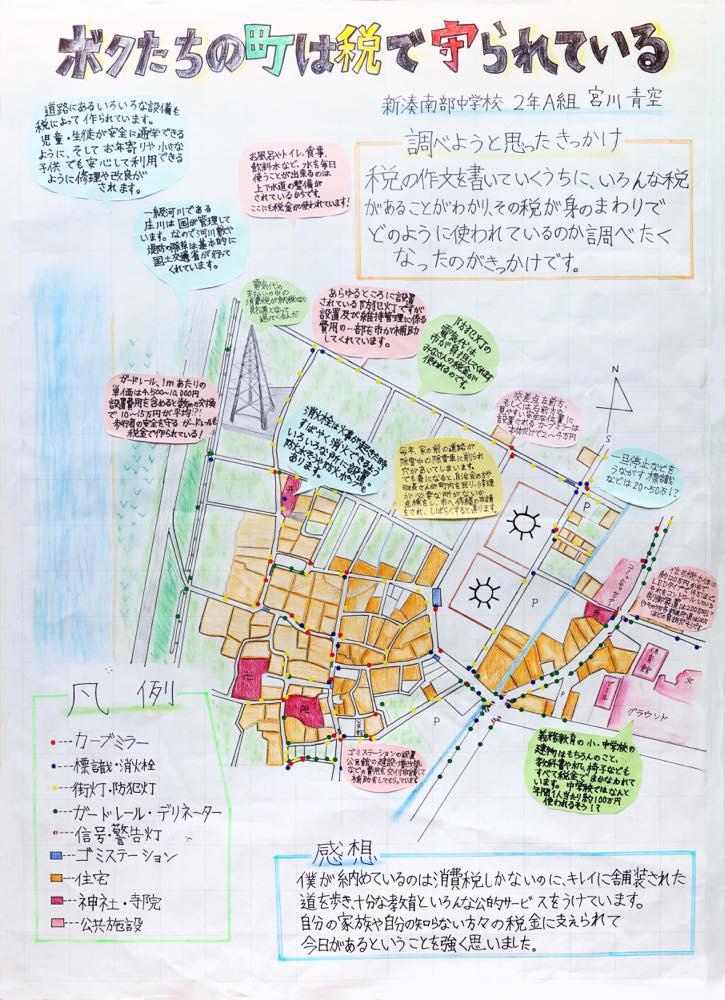 ボクたちの町は税で守られている
新湊南部中学校 2年A組 宮川 青空
道路にあるいろいろな設備も
税によって作られています。
児童・生徒が安全に通学できる
ように、そしてお年寄りや小さな
子供でも安心して利用できる
ように修理や改良が
されます。
お風呂やトイレ、食事、
飲料水など、水を毎日
使うことが出来るのは
上下水道の整備が
されているからです。
ここにも税金が使われています!
調べようと思ったきっかけ
税の作文を書いていくうちに、いろんな税
があることがわかり、その税が身のまわりで
どのように使われているのか調べたく
なったのがきっかけです。
一級河川である
庄川は国が管理して
います。なので河川敷や
堤防の除草は基本的に
国土交通省が行って
くれています。
電気代の
支払いの中の
消費税が納税になり
あらゆるところに設置
されている防犯灯ですが
設置及び維持管理に係る
費用の一部を市が補助
してくれています。
防犯灯の
電気代は
市が負担してくれます
みなさんの税金が
使われるのです。
ガードレール、1mあたりの
単価は4,500~10,000円
設置費用を含めると数mの交換
で10~15万円が平均?!
歩行者の安全を守るガードレールも
税金で作られている!
消火栓は火事が起きた時
すばやく消火できるよう
いろいろな所に設置。
防火水そうや防火林も
あります。
毎年、家の前の道路が
除雪中の除雪車に削られ
穴があいてしまいます。
でも春になると、自治会の方や
班長さんが町内を回り、修理
が必要な所がないか
点検をし、市へ修繕の申請
をされ、しばらくすると直ります。
交差点左前方、
もしくは右前方の
見やすい安全な位置に
設置されるカーブミラーは
本体だけで2~4万円
一旦停止などを
うながす標識
などは20~50万!?
N
S
P
P
P
P
P
P
コミュニティセンター
体育館
プール
グラウンド
文
卍
卍
卍
卍
ゴミステーションの設置
公民館の建設・増改築
などの費用を交付申請して
補助をしてもらっています
義務教育の小・中学校の
建物はもちろんのこと、
教科書や机、椅子なども
すべて税金でまかなわれて
います。中学校ではなんと
年間1人当たり約100万円
使われるそう!?
凡例
・---カーブミラー
・---標識・消火栓
・---街灯・防犯灯
・---ガードレール・デリネーター
・---信号・警告灯
---ゴミステーション
---住宅
---神社・寺院
---公共施設
感想
僕が納めているのは消費税しかないのに、キレイに舗装された
道を歩き、十分な教育といろんな公的サービスをうけています。
自分の家族や自分の知らない方々の税金に支えられて
今日があるということを強く思いました。